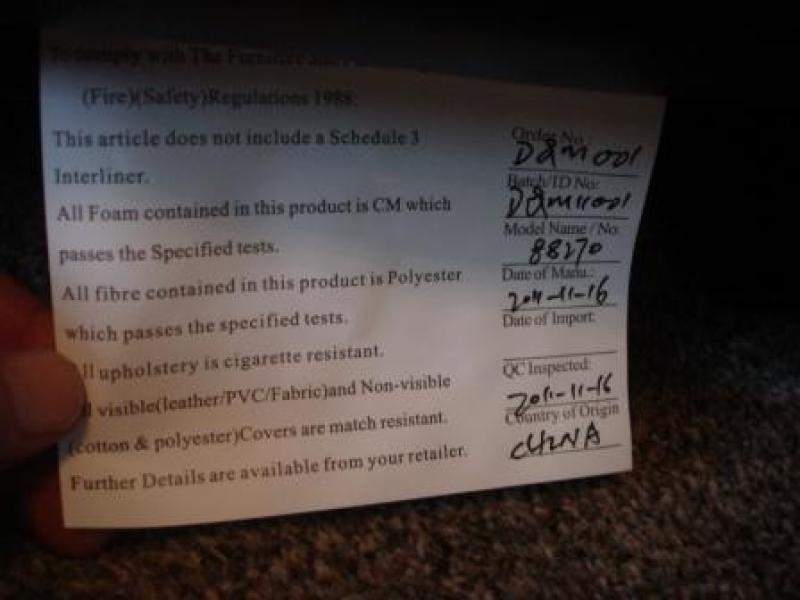 To comply with The Furniture and
(Fire)(Safety)Regulations 1988:
This article does not include a Schedule 3
Interliner.
All Foam contained in this product is CM which
passes the Specified tests.
All fibre contained in this product is Polyester
which passes the specified tests.
All upholstery is cigarette resistant.
visible(leather/PVC/Fabric)and Non-visible
(cotton & polyester)Covers are match resistant.
Further Details are available from your retailer.
Order No.
D&M001
Batch/ID No:
D&M11001
Model Name / No:
88270
Date of Manu.:
2011-11-16
Date of Import:
QC Inspected:
2011-11-16
Country of Origin
CHINA